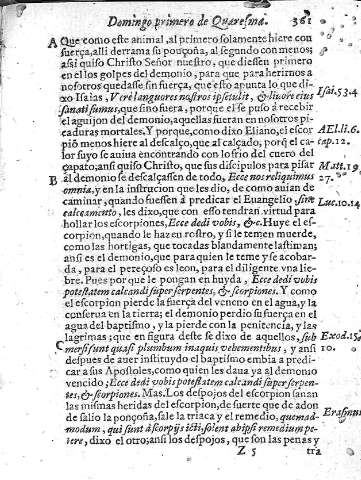 Domingo primero de Quaresma. 361
A Que como este animal, al primero solamente hiere con
fuerça, alli derrama su pouçoña, al segundo con menos;
assi quiso Christo Señor nuestro, que diessen primero
en el los golpes del demonio, para que para herirnos a
nosotros quedasse sin fuerça, que esto apunta lo que di-
xo Isaias, Verè languores nostros ipse tulit, & liuore eius Isai. 53. 4
sanati sumus, que sino fuera, porque el se puso à recebir
el aguijon del demonio, aquellas fueran en nosotros pi-
caduras mortales. Y porque, como dixo Eliano, el escor AEl. li. 6.
piõ menos hiere al descalço, que al calçado, porq̃ el ca- cap. 12.
lor suyo se auiua encontrando con lo frio del cuero del
çapato; ansi quiso Christo, que sus discipulos para pisar Matt. 19
B al demonio se descalçassen de todo, Ecce nos reliquimus 27.
omnia, y en la instrucion que les dio, de como auian de
caminar, quando fuessen à predicar el Euangelio, sine
calceamento, les dixo, que con esso tendran virtud para Luc. 10. 14
hollar los escorpiones, Ecce dedi vobis, &c. Huye el es-
corpion, quando le haz en rostro, y si le temen muerde,
como las hortigas, que tocadas blandamente lastiman;
ansi es el demonio, que para quien le teme y se acobar-
da, para el pereçoso es leon, para el diligente vna lie-
bre. Pues por que le pongan en huyda, Ecce dedi vobis
potestatem calcandi super serpentes, & scorpiones. Y como
el escorpion pierde la fuerça del veneno en el agua, y la
conserua en la tierra; el demonio perdio su fuerça en el
agua del baptismo, y la pierde con la penitencia, y las
lagrimas; que en figura deste se dixo de aquellos, sub Exod. 15.
C mersi sunt quasi plumbum in aquis vehementibus, y ansi 10.
despues de auer instituydo el baptismo embia a predi-
car a sus Apostoles, como quien les daua ya al demonio
vencido; Ecce dedi vobis potestatem calcandi super serpen-
tes, & scorpiones. Mas. Los despojos del escorpion sanan
las mismas heridas del escorpion, de suerte que de adon
de salio la ponçoña, sale la triaca y el remedio, quemad- Erasmus
modum, qui sunt à scorpijs icti, solent ab ipsi remedium pe-
tere, dixo el otro; ansi los despojos, que son las penas y
Z 5 tra